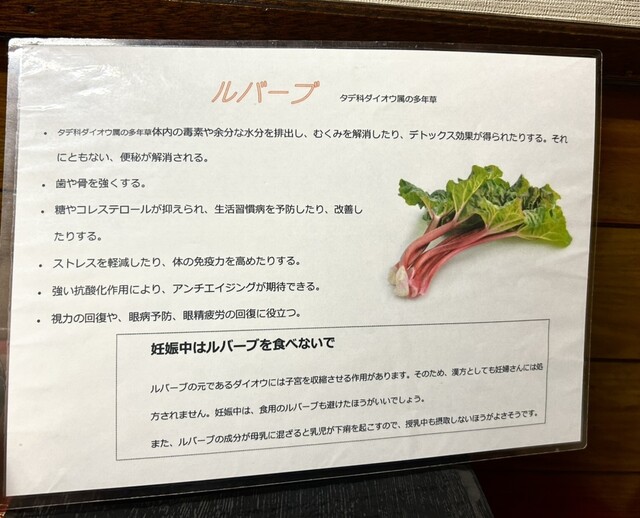 ルバーブ タデ科ダイオウ属の多年草
• タデ科ダイオウ属の多年草体内の毒素や余分な水分を排出し、むくみを解消したり、デトックス効果が得られたりする。それ
にともない、便秘が解消される。
• 歯や骨を強くする。
• 糖やコレステロールが抑えられ、生活習慣病を予防したり、改善し
たりする。
• ストレスを軽減したり、体の免疫力を高めたりする。
• 強い抗酸化作用により、アンチエイジングが期待できる。
• 視力の回復や、眼病予防、眼精疲労の回復に役立つ。
妊娠中はルバーブを食べないで
ルバーブの元であるダイオウには子宮を収縮させる作用があります。そのため、漢方としても妊婦さんには処
方されません。妊娠中は、食用のルバーブも避けたほうがいいでしょう。
また、ルバーブの成分が母乳に混ざると乳児が下痢を起こすので、授乳中も摂取しないほうがよさそうです。